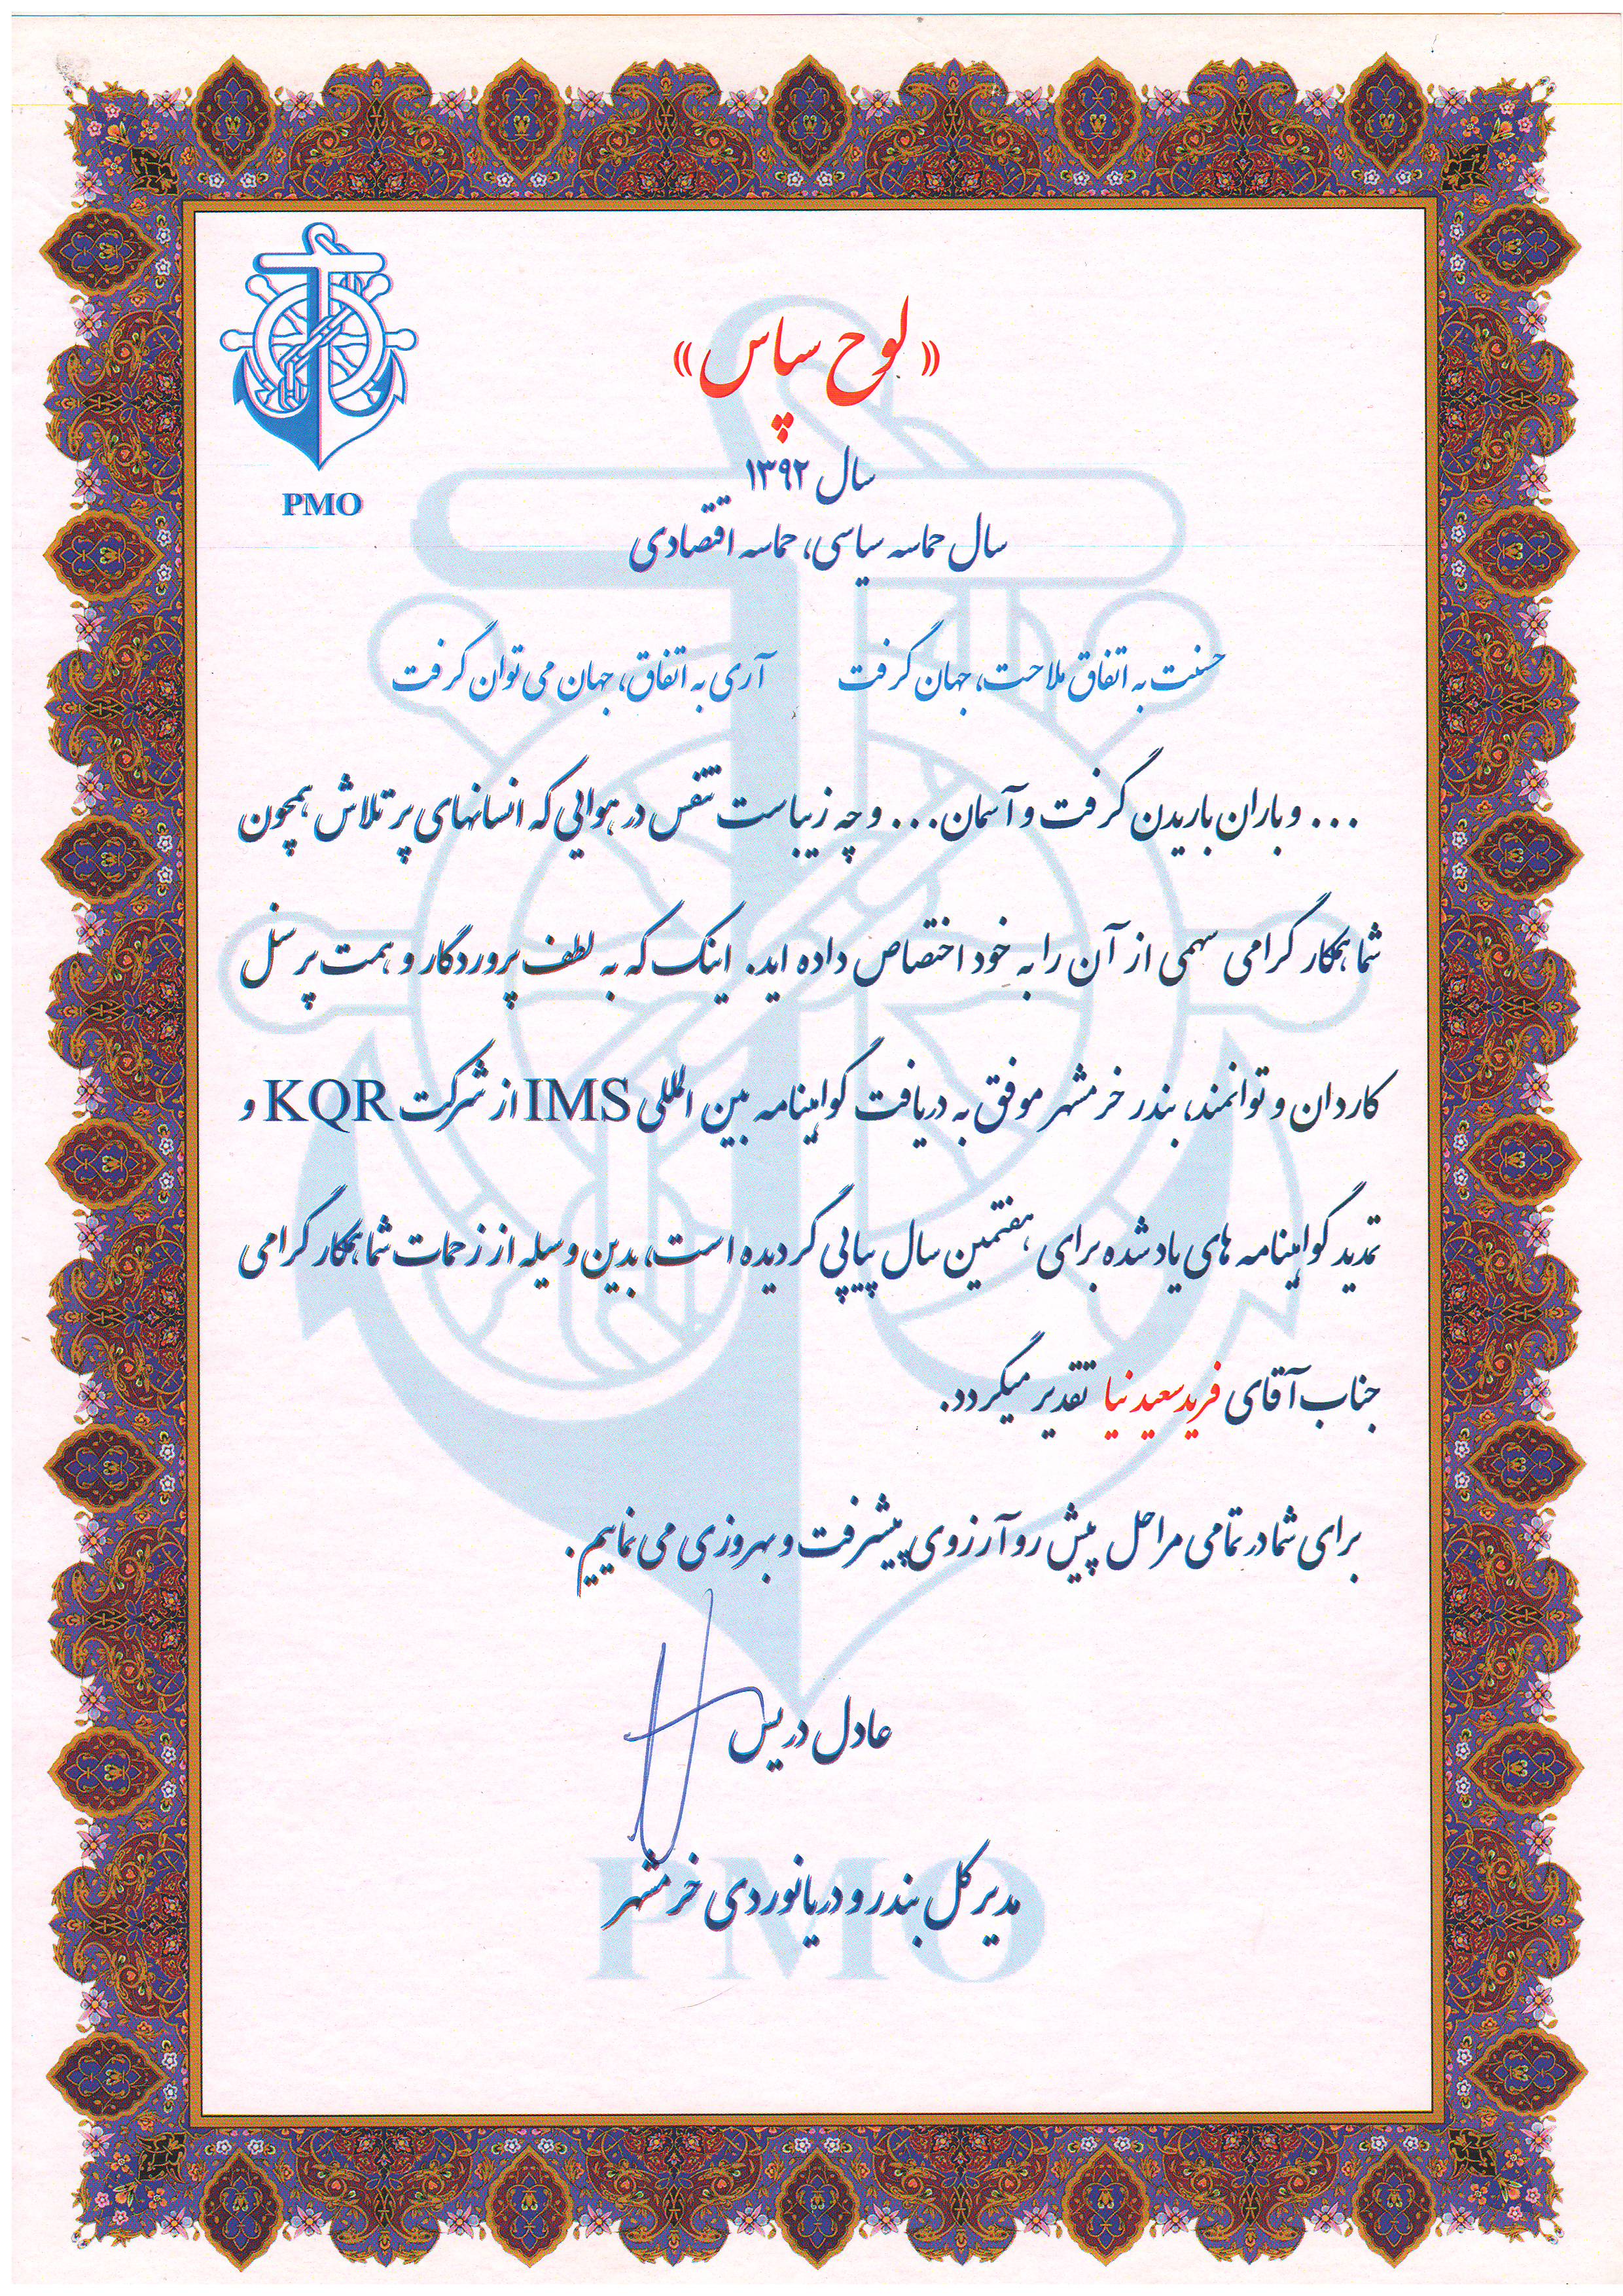 PMO
« لوح سپاس »
سال ۱۳۹۲
سال حماسه سیاسی، حماسه اقتصادی
حسنت به اتفاق ملاحت، جهان گرفت آری به اتفاق، جهان می توان گرفت
... و باران باریدن گرفت و آسمان... و چه زیباست تنفس در هوایی که انسانهای پر تلاش همچون
شما همکار گرامی سهمی از آن را به خود اختصاص داده اید. اینک که به لطف پروردگار و همت پرسنل
کاردان و توانمند، بندر خرمشهر موفق به دریافت گواهینامه بین المللی IMS از شرکت KQR و
تمدید گواهینامه های یاد شده برای هفتمین سال پیاپی گردیده است، بدین وسیله از زحمات شما همکار گرامی
جناب آقای فرید سعید نیا تقدیر میگردد.
برای شما در تمامی مراحل پیش رو آرزوی پیشرفت و بهروزی می نماییم.
عادل دریس
مدیر کل بندر و دریانوردی خرمشهر
PMO